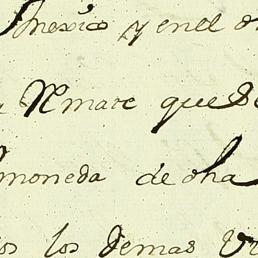 mexico y en el
Rmate que se
moneda de dha
los los demas